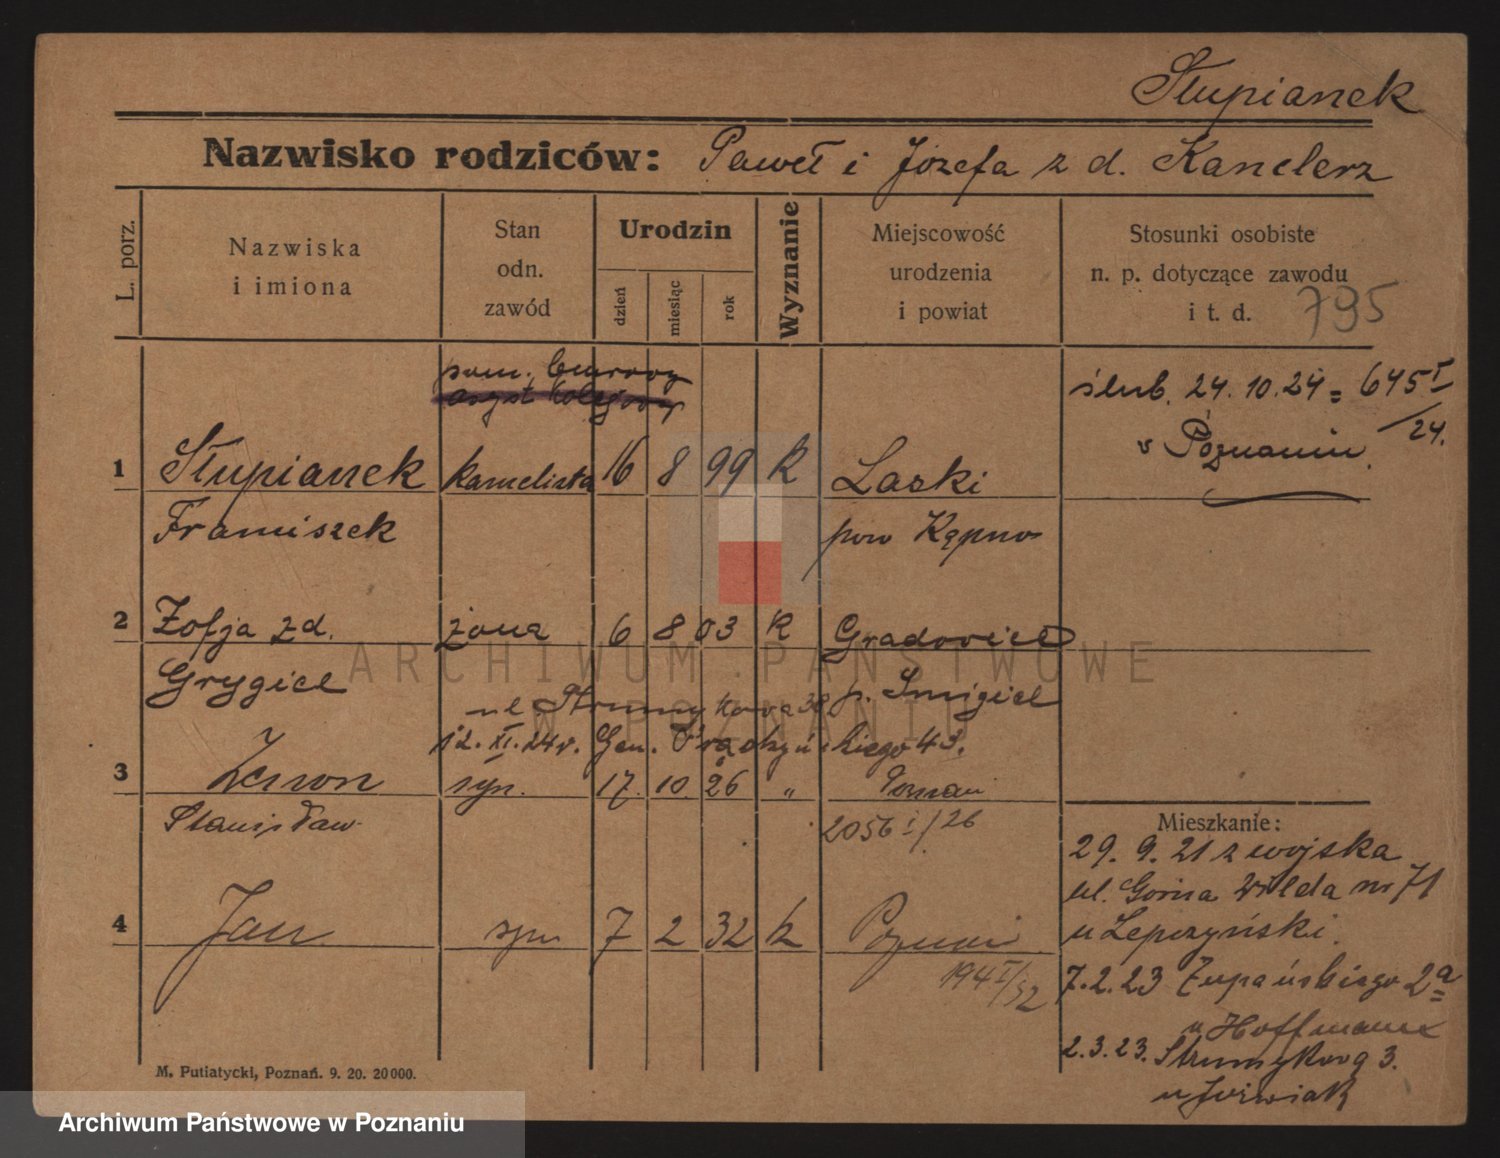 Słupianek
Nazwisko rodziców: Paweł i Józefa z d. Kanclerz
L. porz.
Nazwiska
i imiona
Stan
odn.
zawód
Urodzin
dzień
miesiąc
rok
Wyznanie
Miejscowość
urodzenia
i powiat
Stosunki osobiste
n. p. dotyczące zawodu
i t. d.
795
pom. biurowy
asyst. kolejowy
ślub. 24.10.24 = 645 I/24.
w Poznaniu
1 Słupianek kancelista 16 8 99 k Laski
Franciszek pow Kępno
2 Zofja z d. żona 6 8 03 k Gradowice
Grygiel p. Śmigiel
ul Strumykowa 38
12.XI.24r. Gen. Prądzyńskiego 43.
3 Zenon syn. 17. 10. 26 „ Poznań
Stanisław 2056 I/26
4 Jan syn 7 2 32 k Poznań
194 I/32
Mieszkanie:
29. 9. 21 z wojska
ul. Górna Wilda nr 71
u Lepczyński.
7.2.23 Żupańskiego 2a
u Hoffmann
2.3.23. Strumykowa 3.
u Juświak
M. Putiatycki, Poznań. 9. 20. 20000.
ARCHIWUM PAŃSTWOWE
W POZNANIU
Archiwum Państwowe w Poznaniu